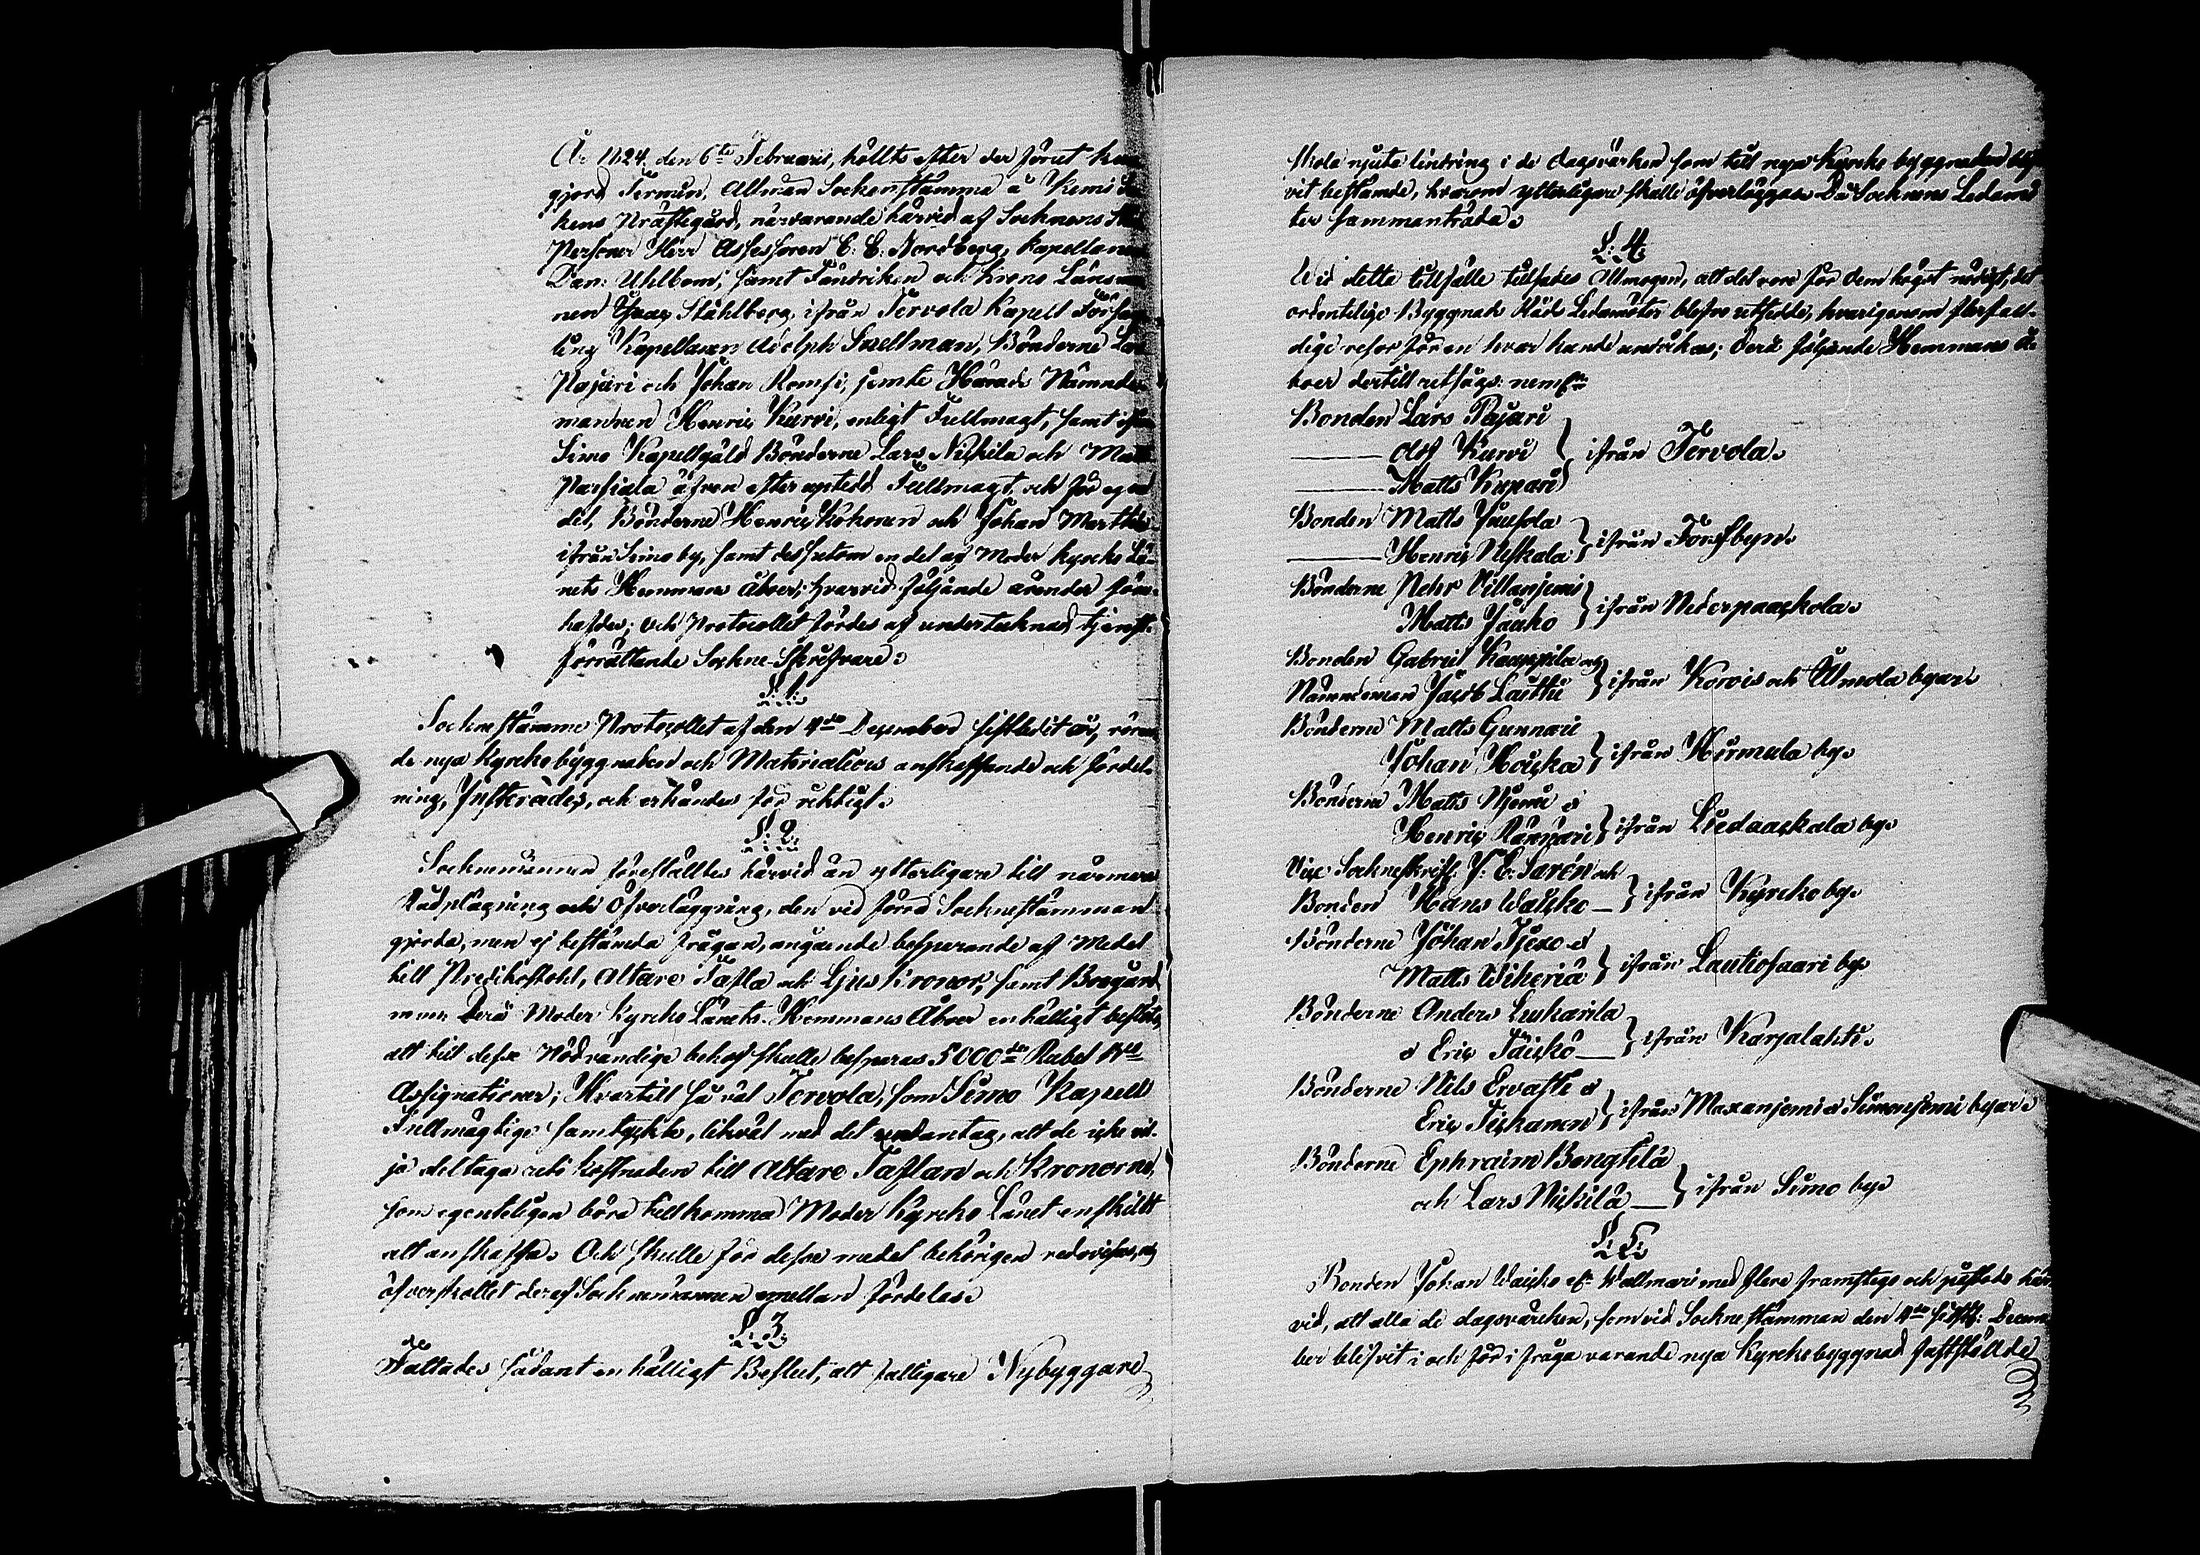 År 1824. den 6te Februarii, höllts efter der förut kun
gjord Termin, Allmän Sockenstämma å Kemi So
kens Prästegård, närvarande härvid af Socknens Stå
Personer Herr Assessoren E. E. Nordberg, Kapellanen
Dan: Uhlbom, samt Fändriken och Krono Länsman
nen Isaac Ståhlberg, ifrån Tervola Kapell Försam
ling Kapellanen Adolph Snellman, Bönderne Lars
Pajari och Johan Romsi, jemte Härads Nämnde
mannen Henric Kurvi, enligt Fullmagt, samt ifrån
Simo Kapellgäld Bönderne Lars Nickila och Matts
Parsiala äfven efter uptedd Fullmagt, och för egen
del, Bönderne Henric Kökonen och Johan Marttila
ifrån Simo by, samt dessutom en del af Moder Kyrcko Lä-
nets Hemmans åboer; hvarvid följande ärender före-
hafdes; och Protocollet fördes af undertecknad tjenst-
förrättande Sockne Skrifvare.
§. 1.
Sockne stämmo Protocollet af den 4de December sistledit år, röran
de nya Kyrcko byggnaden och Materialiers anskaffande och fördel-
ning, Justerades, och erkändes för riktigt.
§. 2.
Socknemännen föreställtes härvid än ytterligare till närmare
Rådplägning och Öfverläggning, den vid förra Sockne stämman
gjorda, men ej bestämda frågan, angående besparande af Medel
till Predikostohl, Altare Tafla och Ljus Kronor, samt Bårgård
Derå Moder Kyrcko Länets Hemmans Åboer enhälligt beslöto,
att till desse Nödvändige behof skulle besparas 5000de Rubel Bco
Assignationer; Hvartill så väl Tervola, som Simo Kapells
Fullmägtige samtyckte, likväl med det undantag, att de icke vil-
ja deltaga uti kostnaden till Altare Taflan och Kronorne,
som egenteligen böra tillkomma Moder Kyrcko Länet enskildt
att anskaffa. Och skulle för desse medel behörigen redovisas, och
öfverskottet deraf Socknemännen emellan fördelas.
§. 3.
Fattades sådant enhälligt Beslut, att fattigare Nybyggare
skola njuta lindring i de dagsvärken som till nya Kyrcko byggnaden blif
vit bestämde, hvarom ytterligare skulle öfverläggas Då Socknens Ledamö
ter sammanträda.
§. 4.
Vid dette tillfälle tillsades Allmogen, att det vore för dem högst nödigt, det
ordentelige Byggnads Råds Ledamöter blefvo utsedde, hvarigenom flerfal-
dige resor för en hvar kunde undvikas; Derå följande Hemmans å-
boer dertill utsågs: neml:n
Bonden Lars Pajari
——— Olof Kurvi } ifrån Tervola.
——— Matts Kupari
Bonden Matts Juusola
——— Henric Niskala } ifrån Torsbyn.
Bönderne Pehr Villanjemi
Matts Jauho } ifrån Nederpaackola.
Bonden Gabriel Kauppila och
Nämndeman Jacob Lautti } ifrån Korvis och Älmola byar.
Bönderne Matts Gunnari
Johan Houcka } ifrån Hirmula by.
Bönderne Matts Njemi o
Henric Rännäri } ifrån Liedaackala by.
Vice Socknskrifv. J. E. Sarén och
Bonden Hans Waicko — } ifrån Kyrcko by.
Bönderne Johan Tjexo o
Matts Wikeriä } ifrån Lautiosaari by.
Bönderne Anders Luskarila
o Eric Täickö — } ifrån Karjalahti.
Bönderne Nils Ervasti o
Eric Tickanen } ifrån Maxanjemi o Simonjemi byar.
Bönderne Ephraim Bengtilä
och Lars Nickilä — } ifrån Simo by.
§. 5.
Bonden Johan Waicko ef: Wallmari med flere framstego och påstodo här
vid, att alla de dagsvärcken, som vid Sockne stämman den 4de sistl: Decem
ber blifvit i och för i fråga varande nya Kyrcko byggnad fastställde